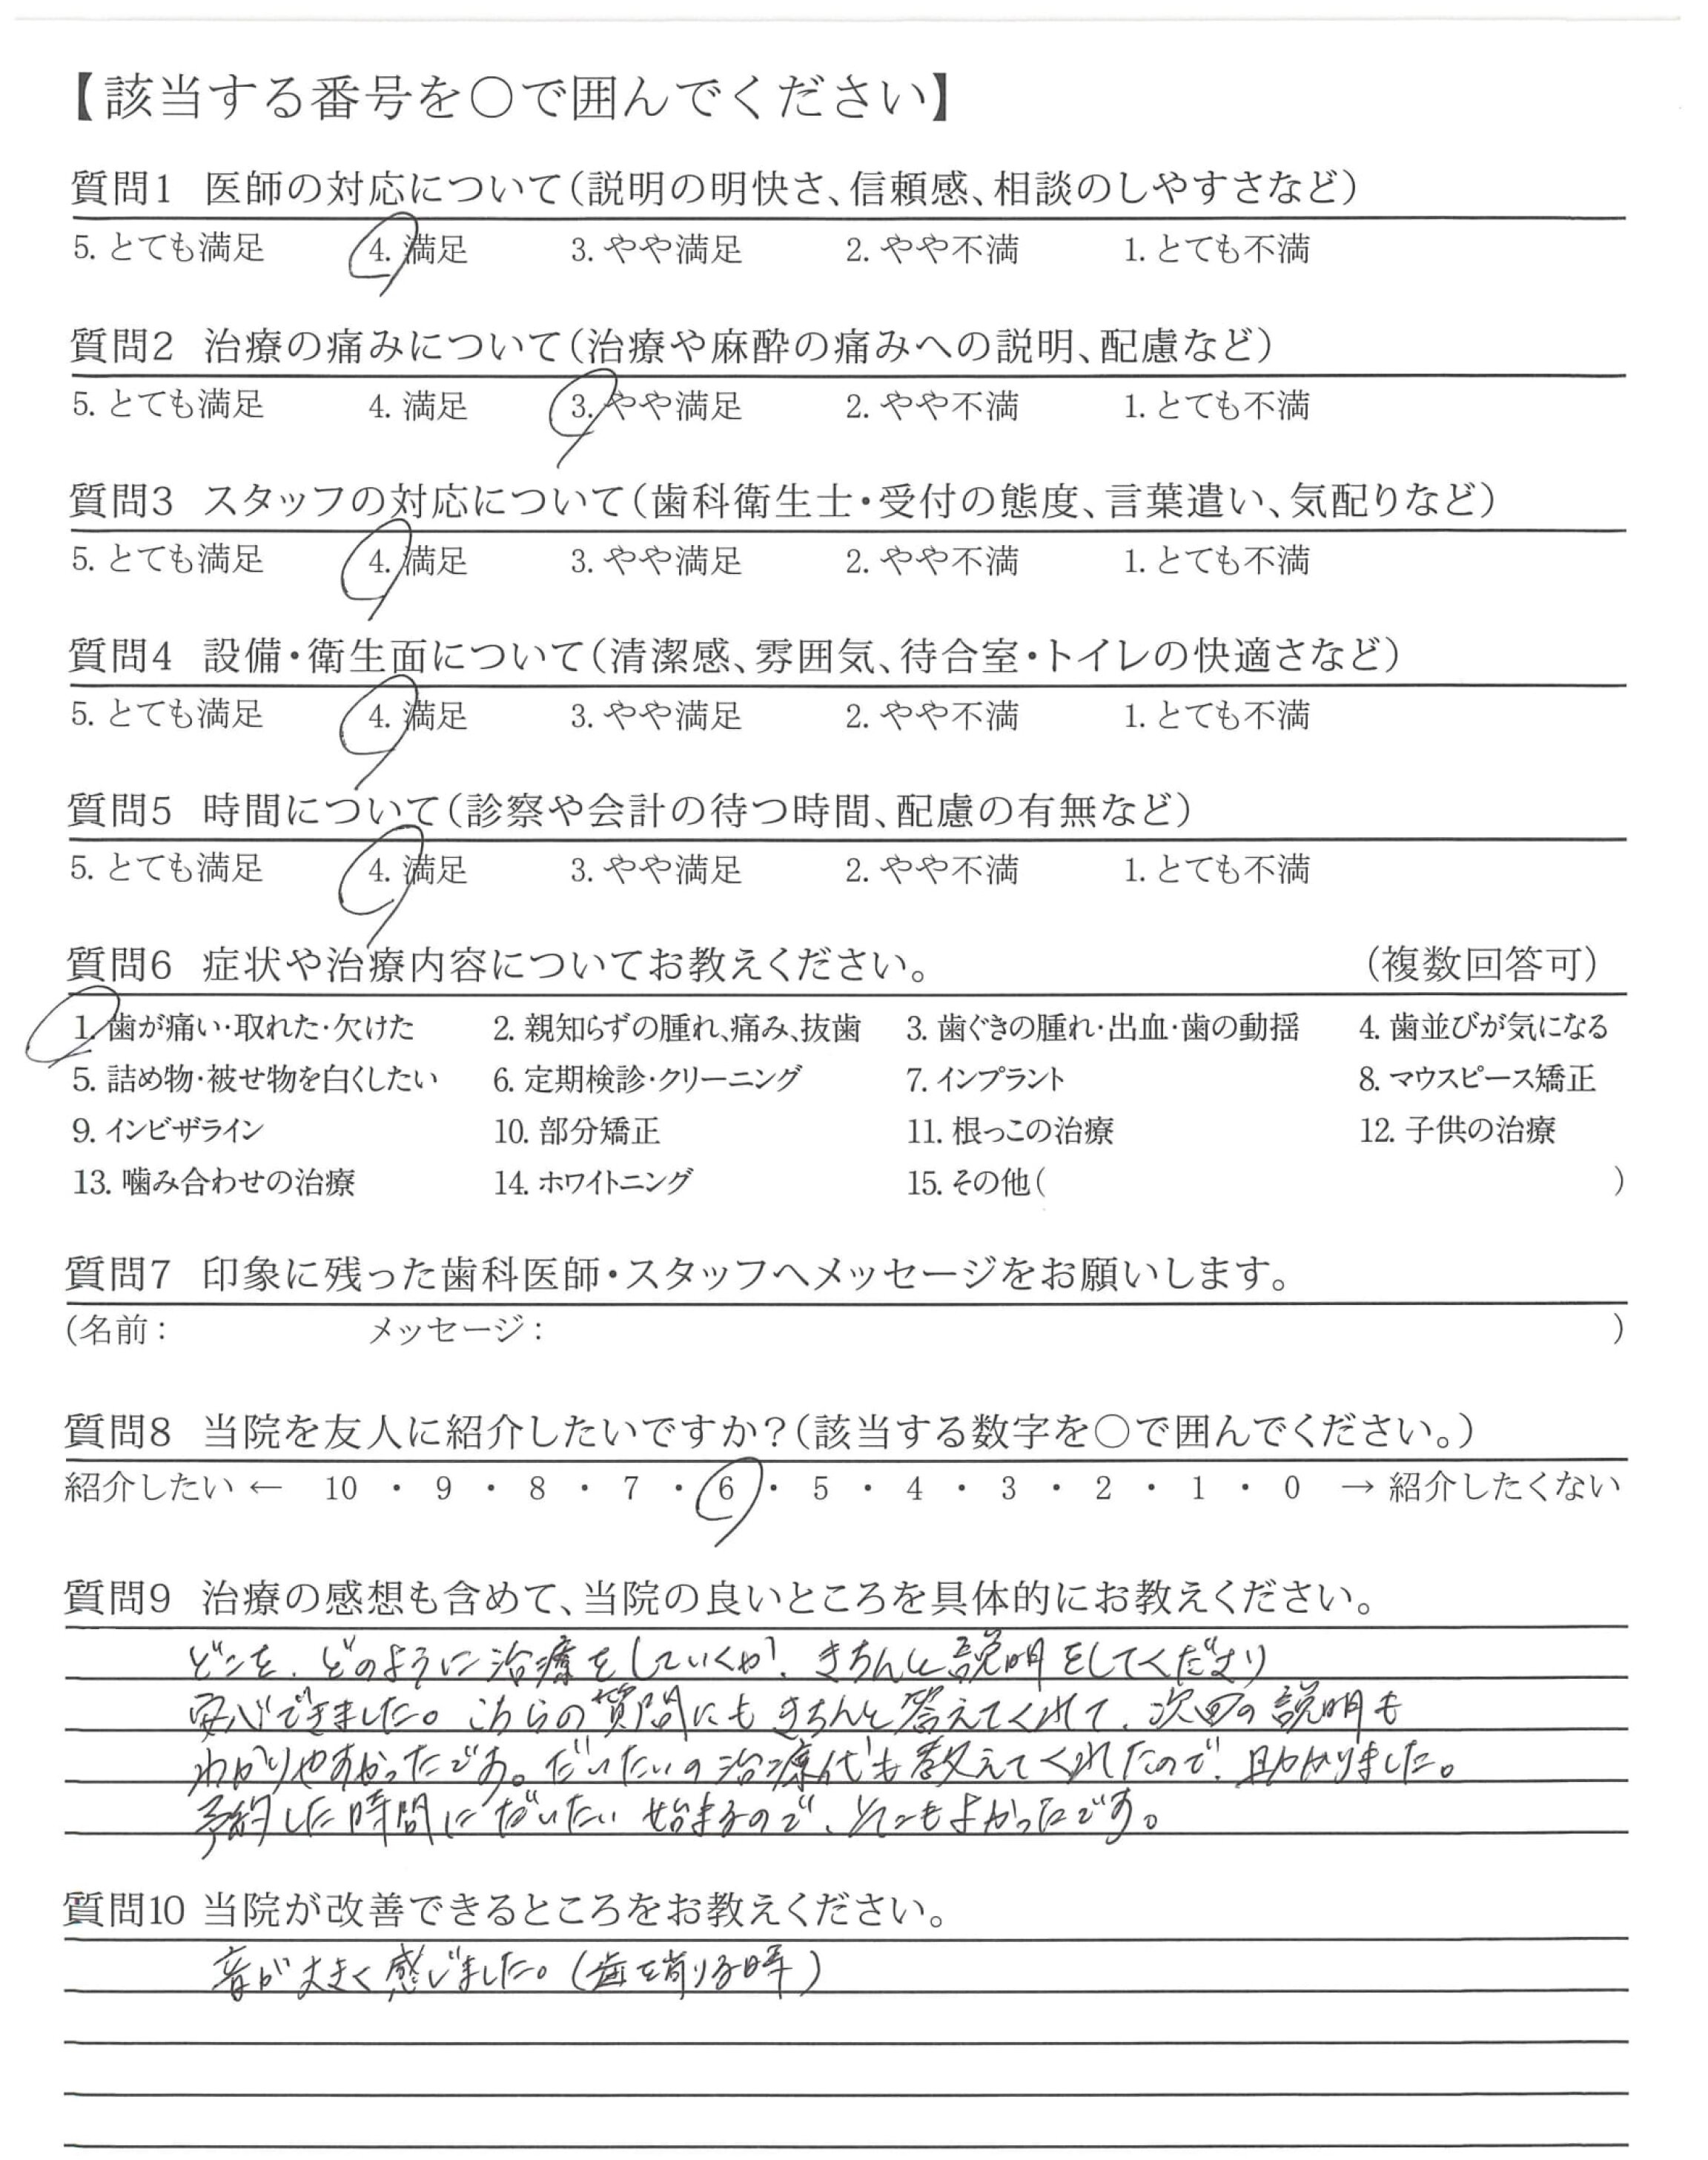 【該当する番号を○で囲んでください】
質問1 医師の対応について(説明の明快さ、信頼感、相談のしやすさなど)
5. とても満足 4. 満足 3. やや満足 2. やや不満 1. とても不満
質問2 治療の痛みについて(治療や麻酔の痛みへの説明、配慮など)
5. とても満足 4. 満足 3. やや満足 2. やや不満 1. とても不満
質問3 スタッフの対応について(歯科衛生士・受付の態度、言葉遣い、気配りなど)
5. とても満足 4. 満足 3. やや満足 2. やや不満 1. とても不満
質問4 設備・衛生面について(清潔感、雰囲気、待合室・トイレの快適さなど)
5. とても満足 4. 満足 3. やや満足 2. やや不満 1. とても不満
質問5 時間について(診察や会計の待つ時間、配慮の有無など)
5. とても満足 4. 満足 3. やや満足 2. やや不満 1. とても不満
質問6 症状や治療内容についてお教えください。 (複数回答可)
1. 歯が痛い・取れた・欠けた 2. 親知らずの腫れ、痛み、抜歯 3. 歯ぐきの腫れ・出血・歯の動揺 4. 歯並びが気になる
5. 詰め物・被せ物を白くしたい 6. 定期検診・クリーニング 7. インプラント 8. マウスピース矯正
9. インビザライン 10. 部分矯正 11. 根っこの治療 12. 子供の治療
13. 噛み合わせの治療 14. ホワイトニング 15. その他( )
質問7 印象に残った歯科医師・スタッフへメッセージをお願いします。
(名前: メッセージ: )
質問8 当院を友人に紹介したいですか?(該当する数字を○で囲んでください。)
紹介したい ← 10 ・ 9 ・ 8 ・ 7 ・ 6 ・ 5 ・ 4 ・ 3 ・ 2 ・ 1 ・ 0 → 紹介したくない
質問9 治療の感想も含めて、当院の良いところを具体的にお教えください。
どこを、どのように治療をしていくか、きちんと説明をしてくださり
安心できました。こちらの質問にもきちんと答えてくれて、次回の説明も
わかりやすかったです。だいたいの治療代も教えてくれたので、助かりました。
予約した時間にだいたい始まるので、そこもよかったです。
質問10 当院が改善できるところをお教えください。
音が大きく感じました。(歯を削る時)